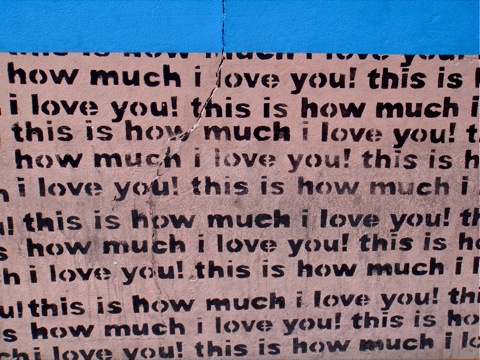 this is how much i love you!
how much i love you! this is
i love you! this is how much i
this is how much i love you!
how much i love you! this is h
n i love you! this is how much i
u! this is how much i love you! th
s how much i love you! this is ho
ch i love you! this is how much i l
u! this is how much i love you! thi
s how much i love you! this is ho
ch i love you! this is how much i l